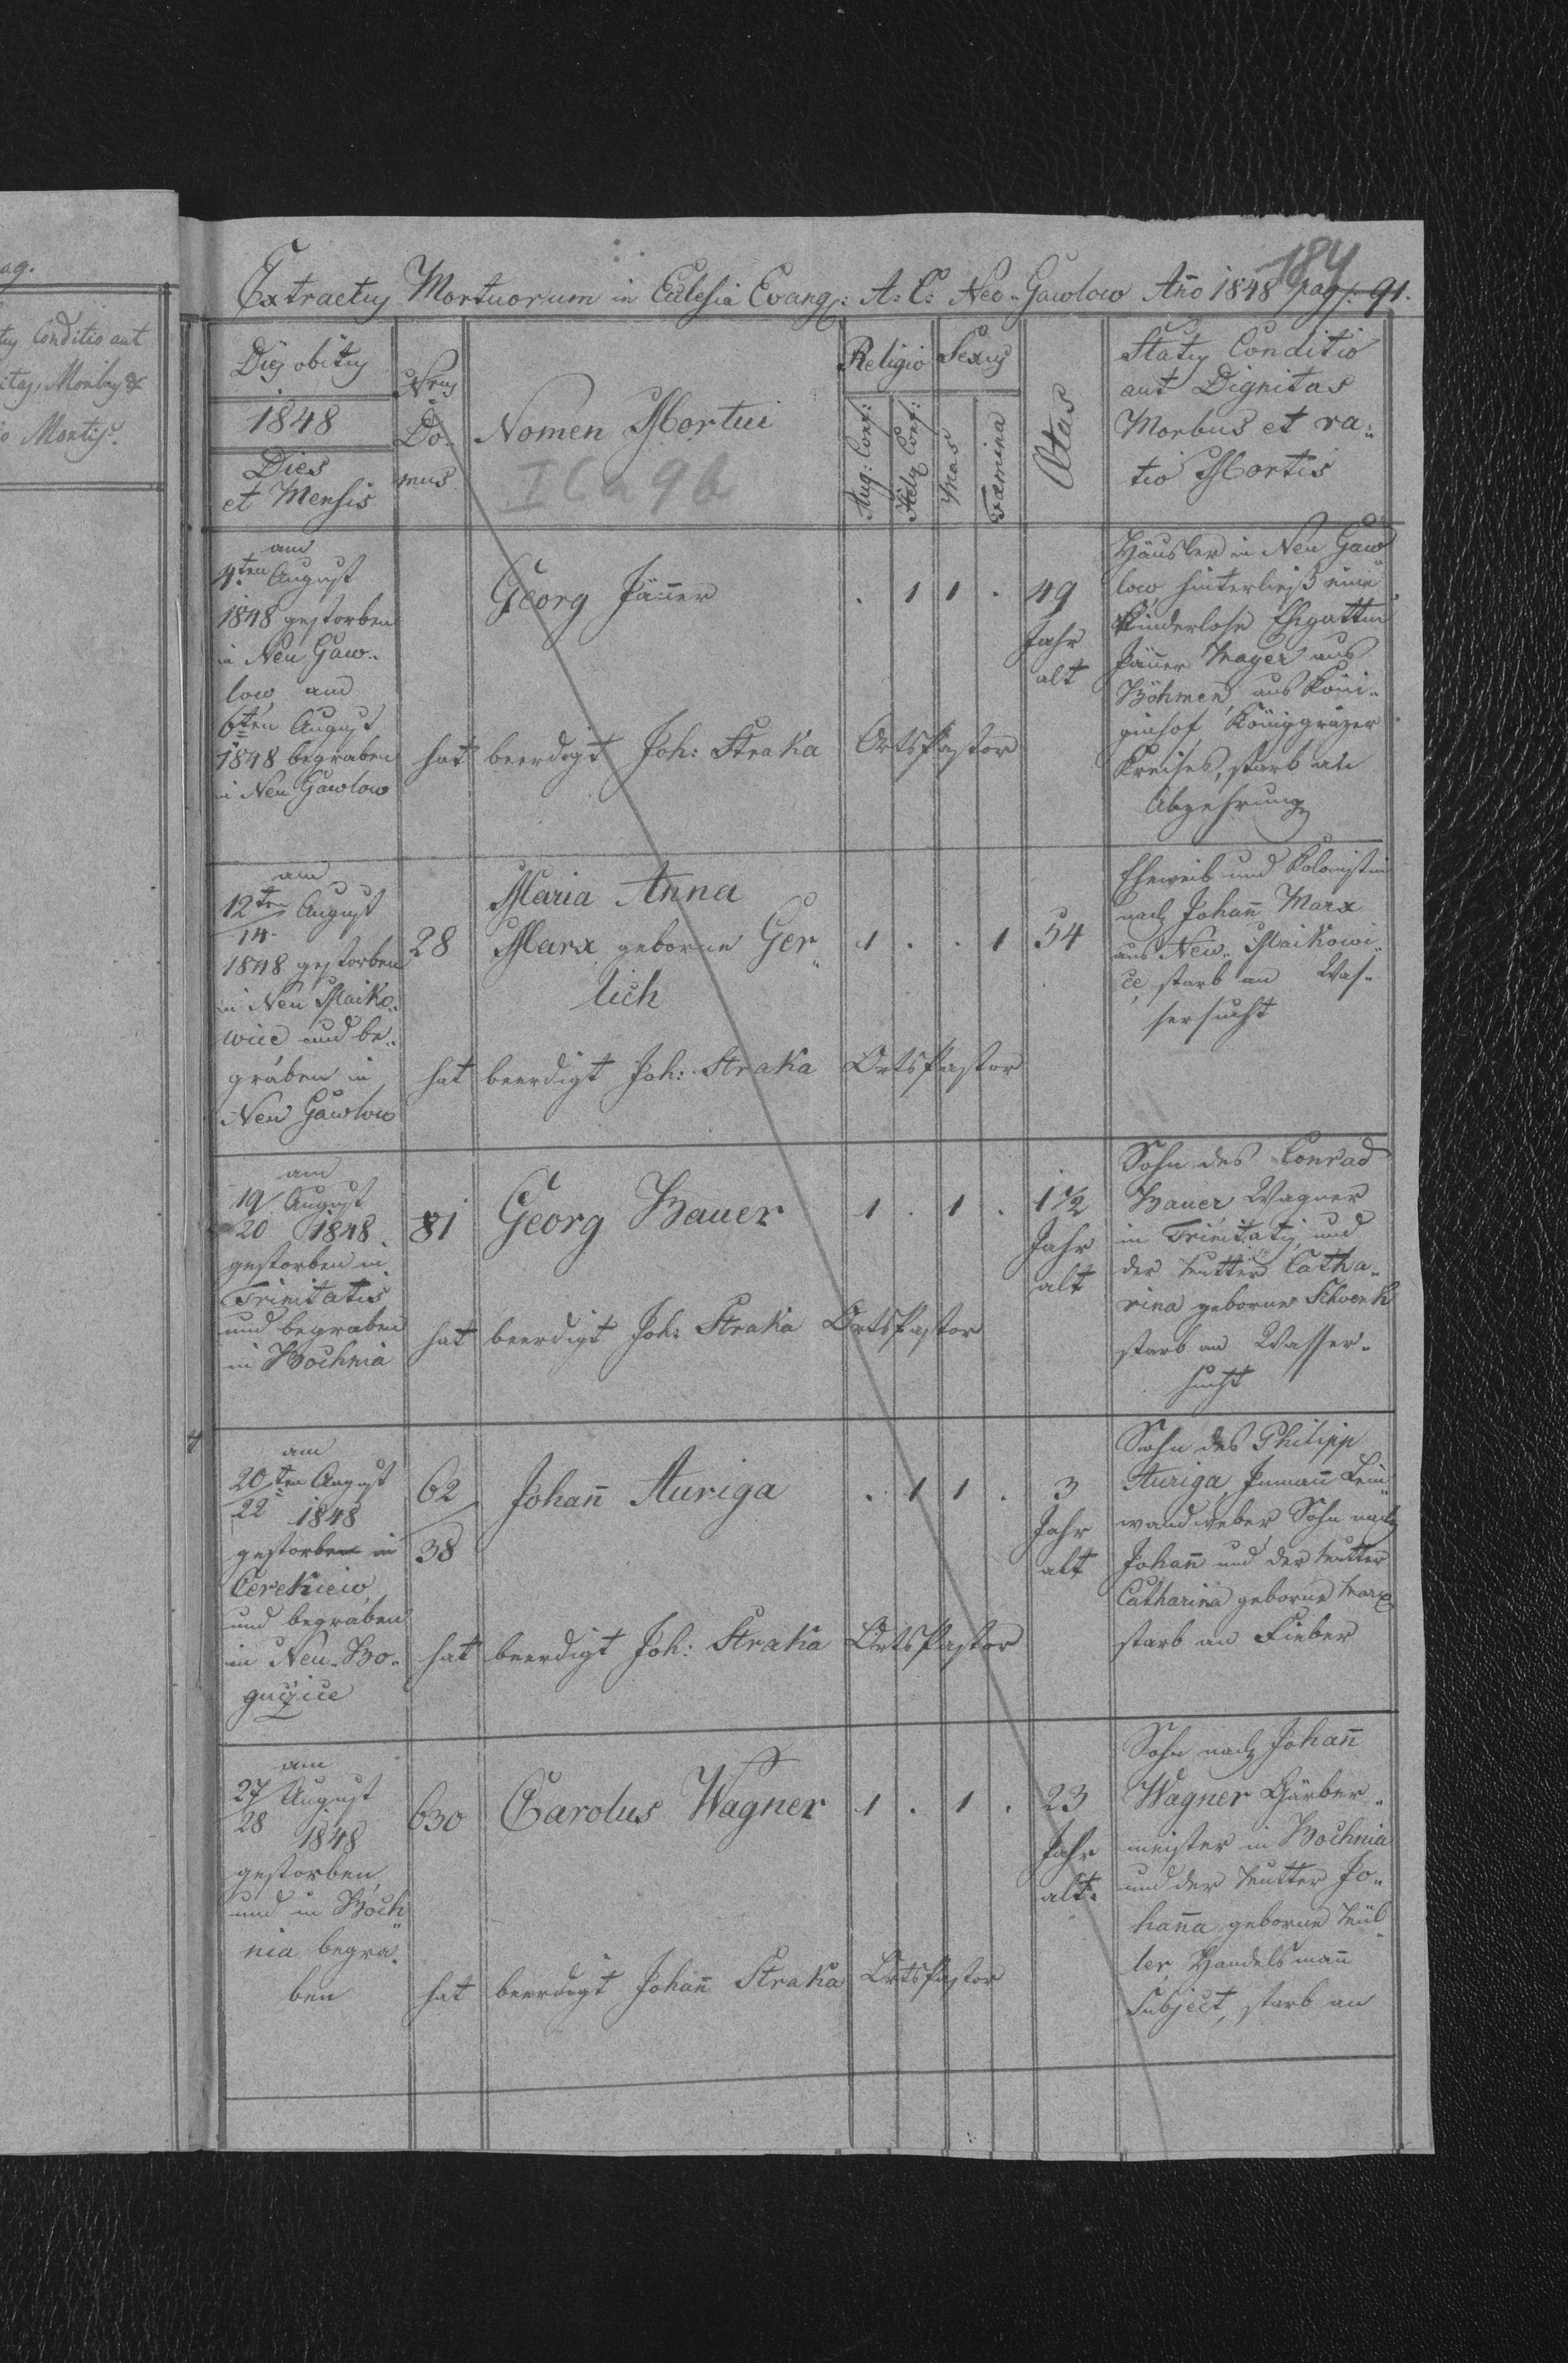 ag.
tus Conditio aut
itas, Morbus &
o Mortis.
184
Extractus Mortuorum in Eclesia Evang: A: C: Neo-Gawlow Año 1848 pag: 91.
Dies obitus
1848
Dies
et Mensis
Nrus
Do-
mus
Nomen Mortui
I Ca 9b
Religio
Aug: Conf:
Helv: Conf:
Sexus
Mas
Fæmina
Ætas
Status Conditio
aut Dignitas
Morbus et ra-
tio Mortis
am
4ten August
1848 gestorben
in Neu Gaw-
low, am
6ten August
1848 begraben
in Neu Gawlow
Georg Jäner
. 1 1 .
49
Jahr
alt
hat beerdigt Joh: Straka OrtsPastor
Häusler in Neu Gaw
low hinterließ eine
Kinderlose Ehgattin
Jäner Mayer aus
Böhmen, aus Köni-
ginhof Königgräzer
Kreises, starb an
Abzehrung
am
12ten August
14.
1848 gestorben
in Neu Maiko-
wice und be-
graben in
Neu Gawlow
28
Maria Anna
Marx geborne Ger-
lich
1 . . 1
54
hat beerdigt Joh: Straka OrtsPastor
Eheweib und Kolonistin
nach Johañ Marx
aus New-Maikowi-
ce, starb an Was-
sersucht
am
19 August
20 1848
gestorben in
Trinitatis
und begraben
in Bochnia
81
Georg Bauer
1 . 1 .
1½
Jahr
alt
hat beerdigt Joh: Straka OrtsPastor
Sohn des Conrad
Bauer Wagner
in Trinitatis, und
der Mutter Catha-
rina geborne Schwenk
starb an Wasser-
sucht
am
20ten August
22 1848
gestorben in
Cerekiew,
und begraben
in Neu-Bo-
guçice
62
38
Johañ Auriga
. 1 1 .
3
Jahr
alt
hat beerdigt Joh: Straka OrtsPastor
Sohn des Philipp
Auriga, Inmañ Lein
wandweber, Sohn nach
Johañ und der Mutter
Catharina geborne Marx,
starb an Fieber
am
27 August
28 1848
gestorben,
und in Boch
nia begra-
ben
630
Carolus Wagner
1 . 1 .
23
Jahr
alt.
hat beerdigt Johañ Straka OrtsPastor
Sohn nach Johañ
Wagner Gärber-
meister in Bochnia
und der Mutter Jo-
haña geborne Mül-
ler, Handelsmañ
Subject, starb an